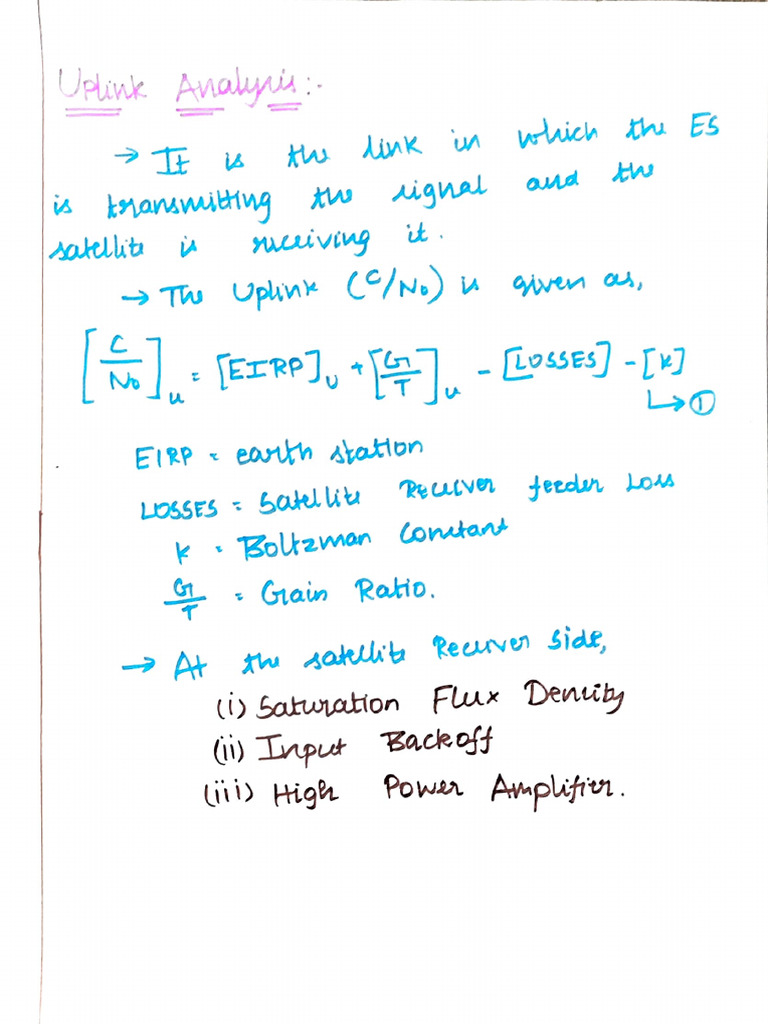 Uplink Analysis:-
→ It is the link in which the ES
is transmitting the signal and the
satellite is receiving it.
→ The Uplink (C/No) is given as,
[C/No]u = [EIRP]U + [G/T]u - [LOSSES] - [k]
↳ ①
EIRP = earth station
LOSSES = Satellite Receiver feeder Loss
k = Boltzman Constant
G/T = Gain Ratio.
→ At the satellite Receiver Side,
(i) Saturation Flux Density
(ii) Input Backoff
(iii) High Power Amplifier.